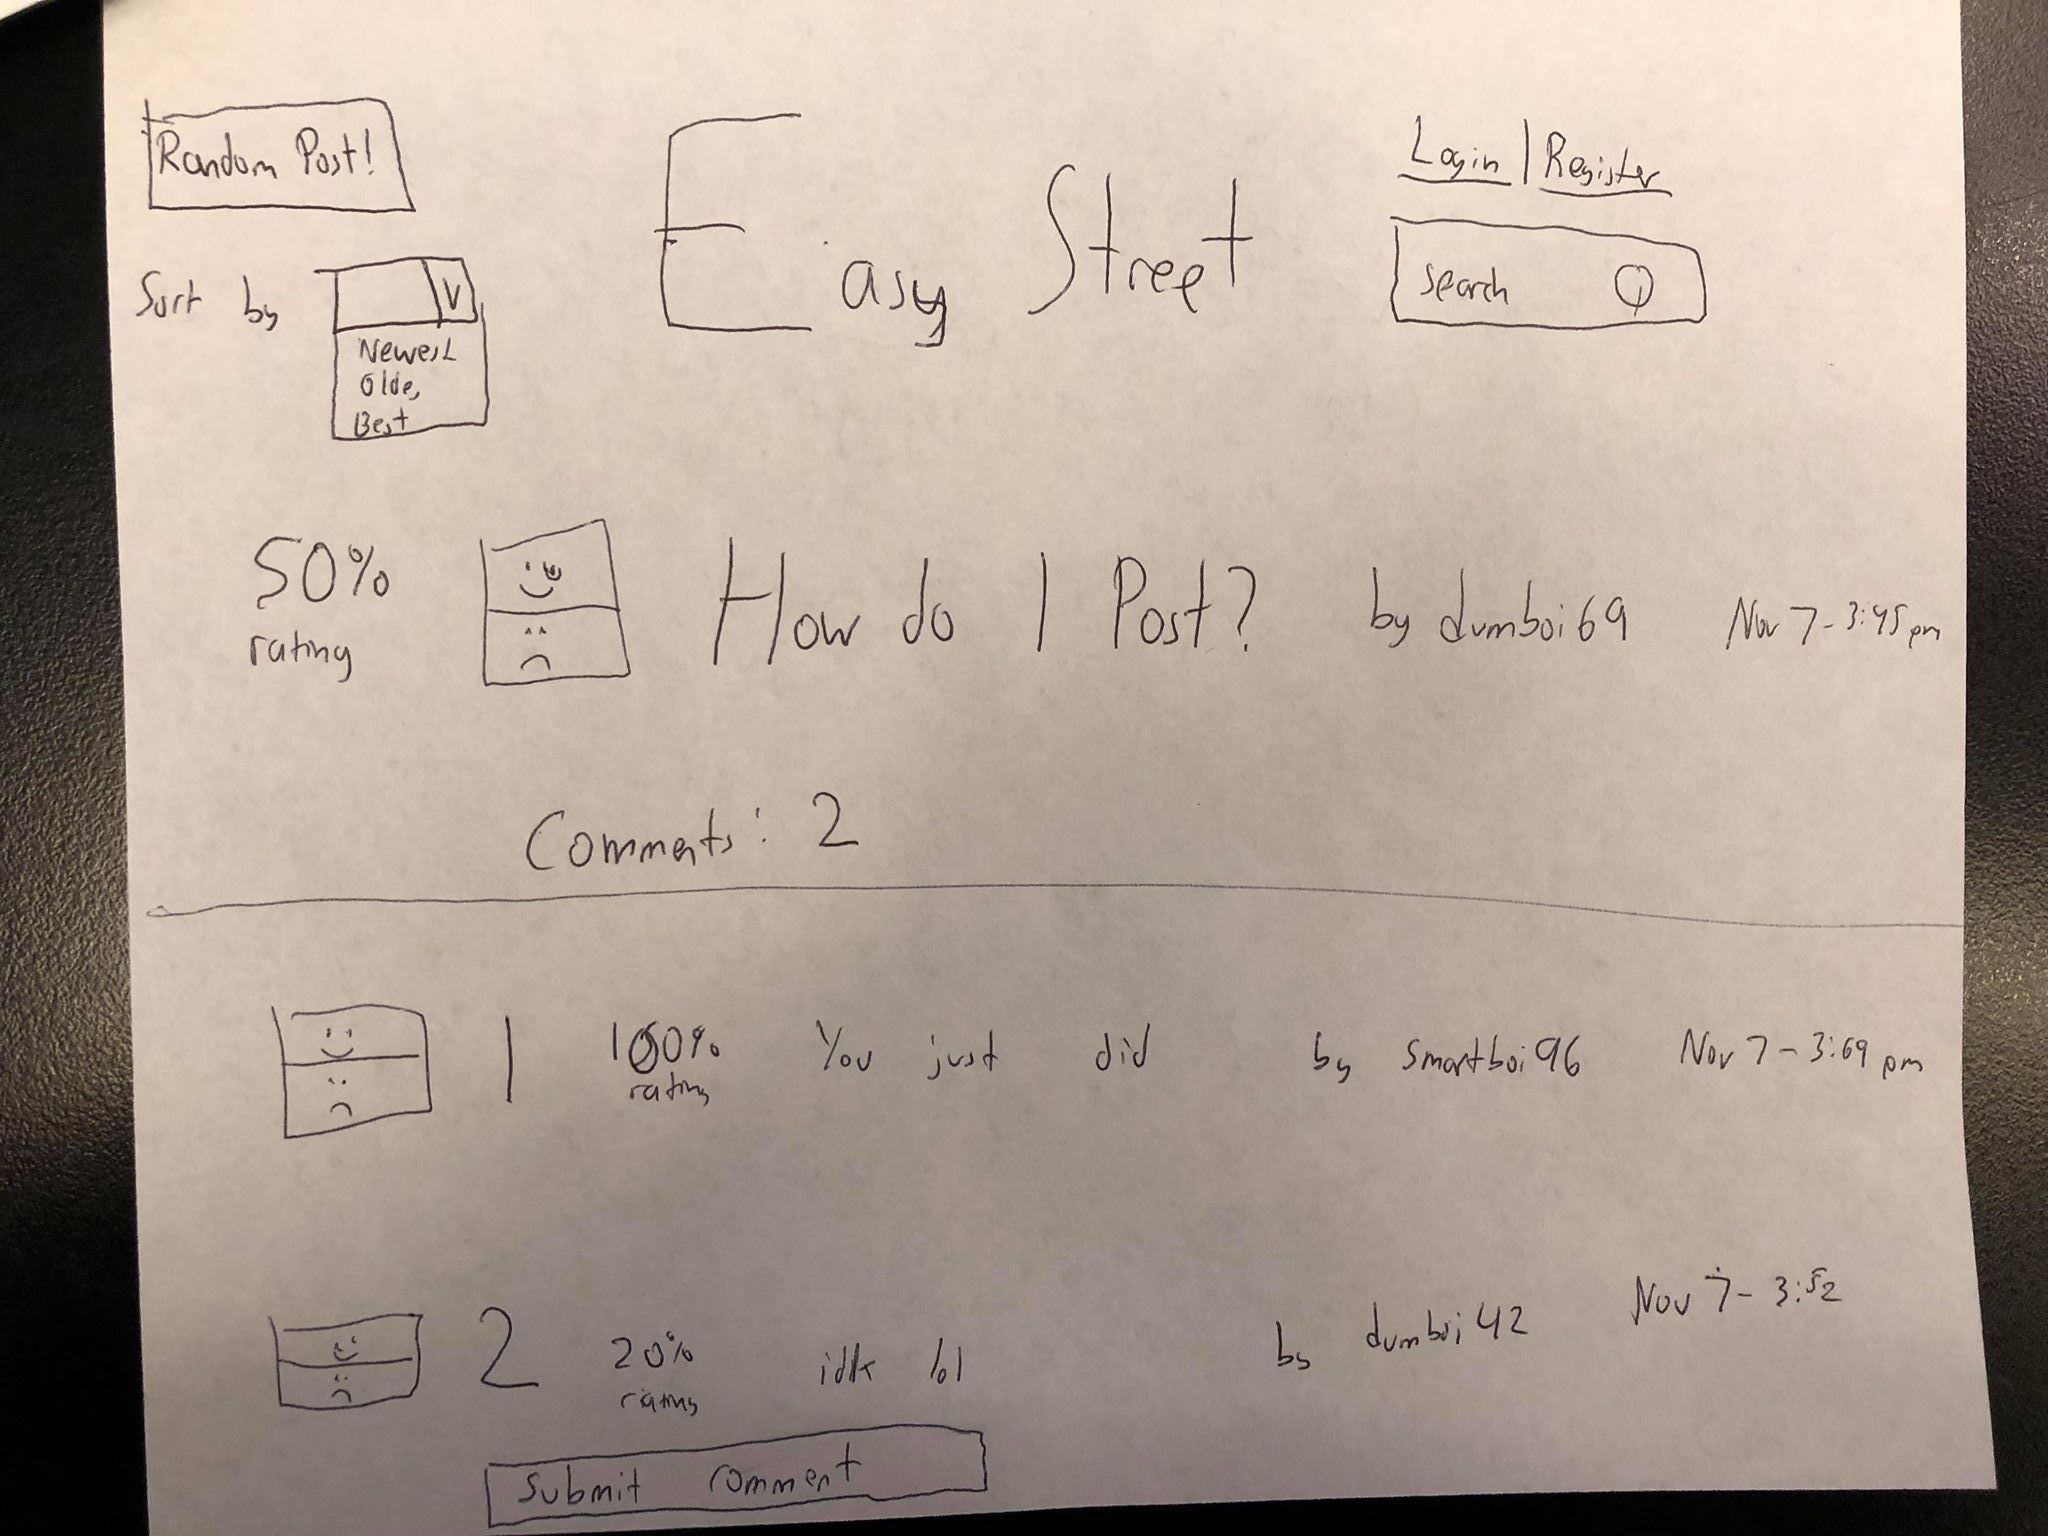 Random Post!
Easy Street
Login | Register
Sort by
V
search
Newest
Oldes
Best
50%
rating
How do I Post?
by dumboi69
Nov 7 - 3:45 pm
Comments: 2
1
100%
rating
You just did
by smartboi96
Nov 7 - 3:69 pm
2
20%
rating
idk lol
by dumboi42
Nov 7 - 3:52
submit comment